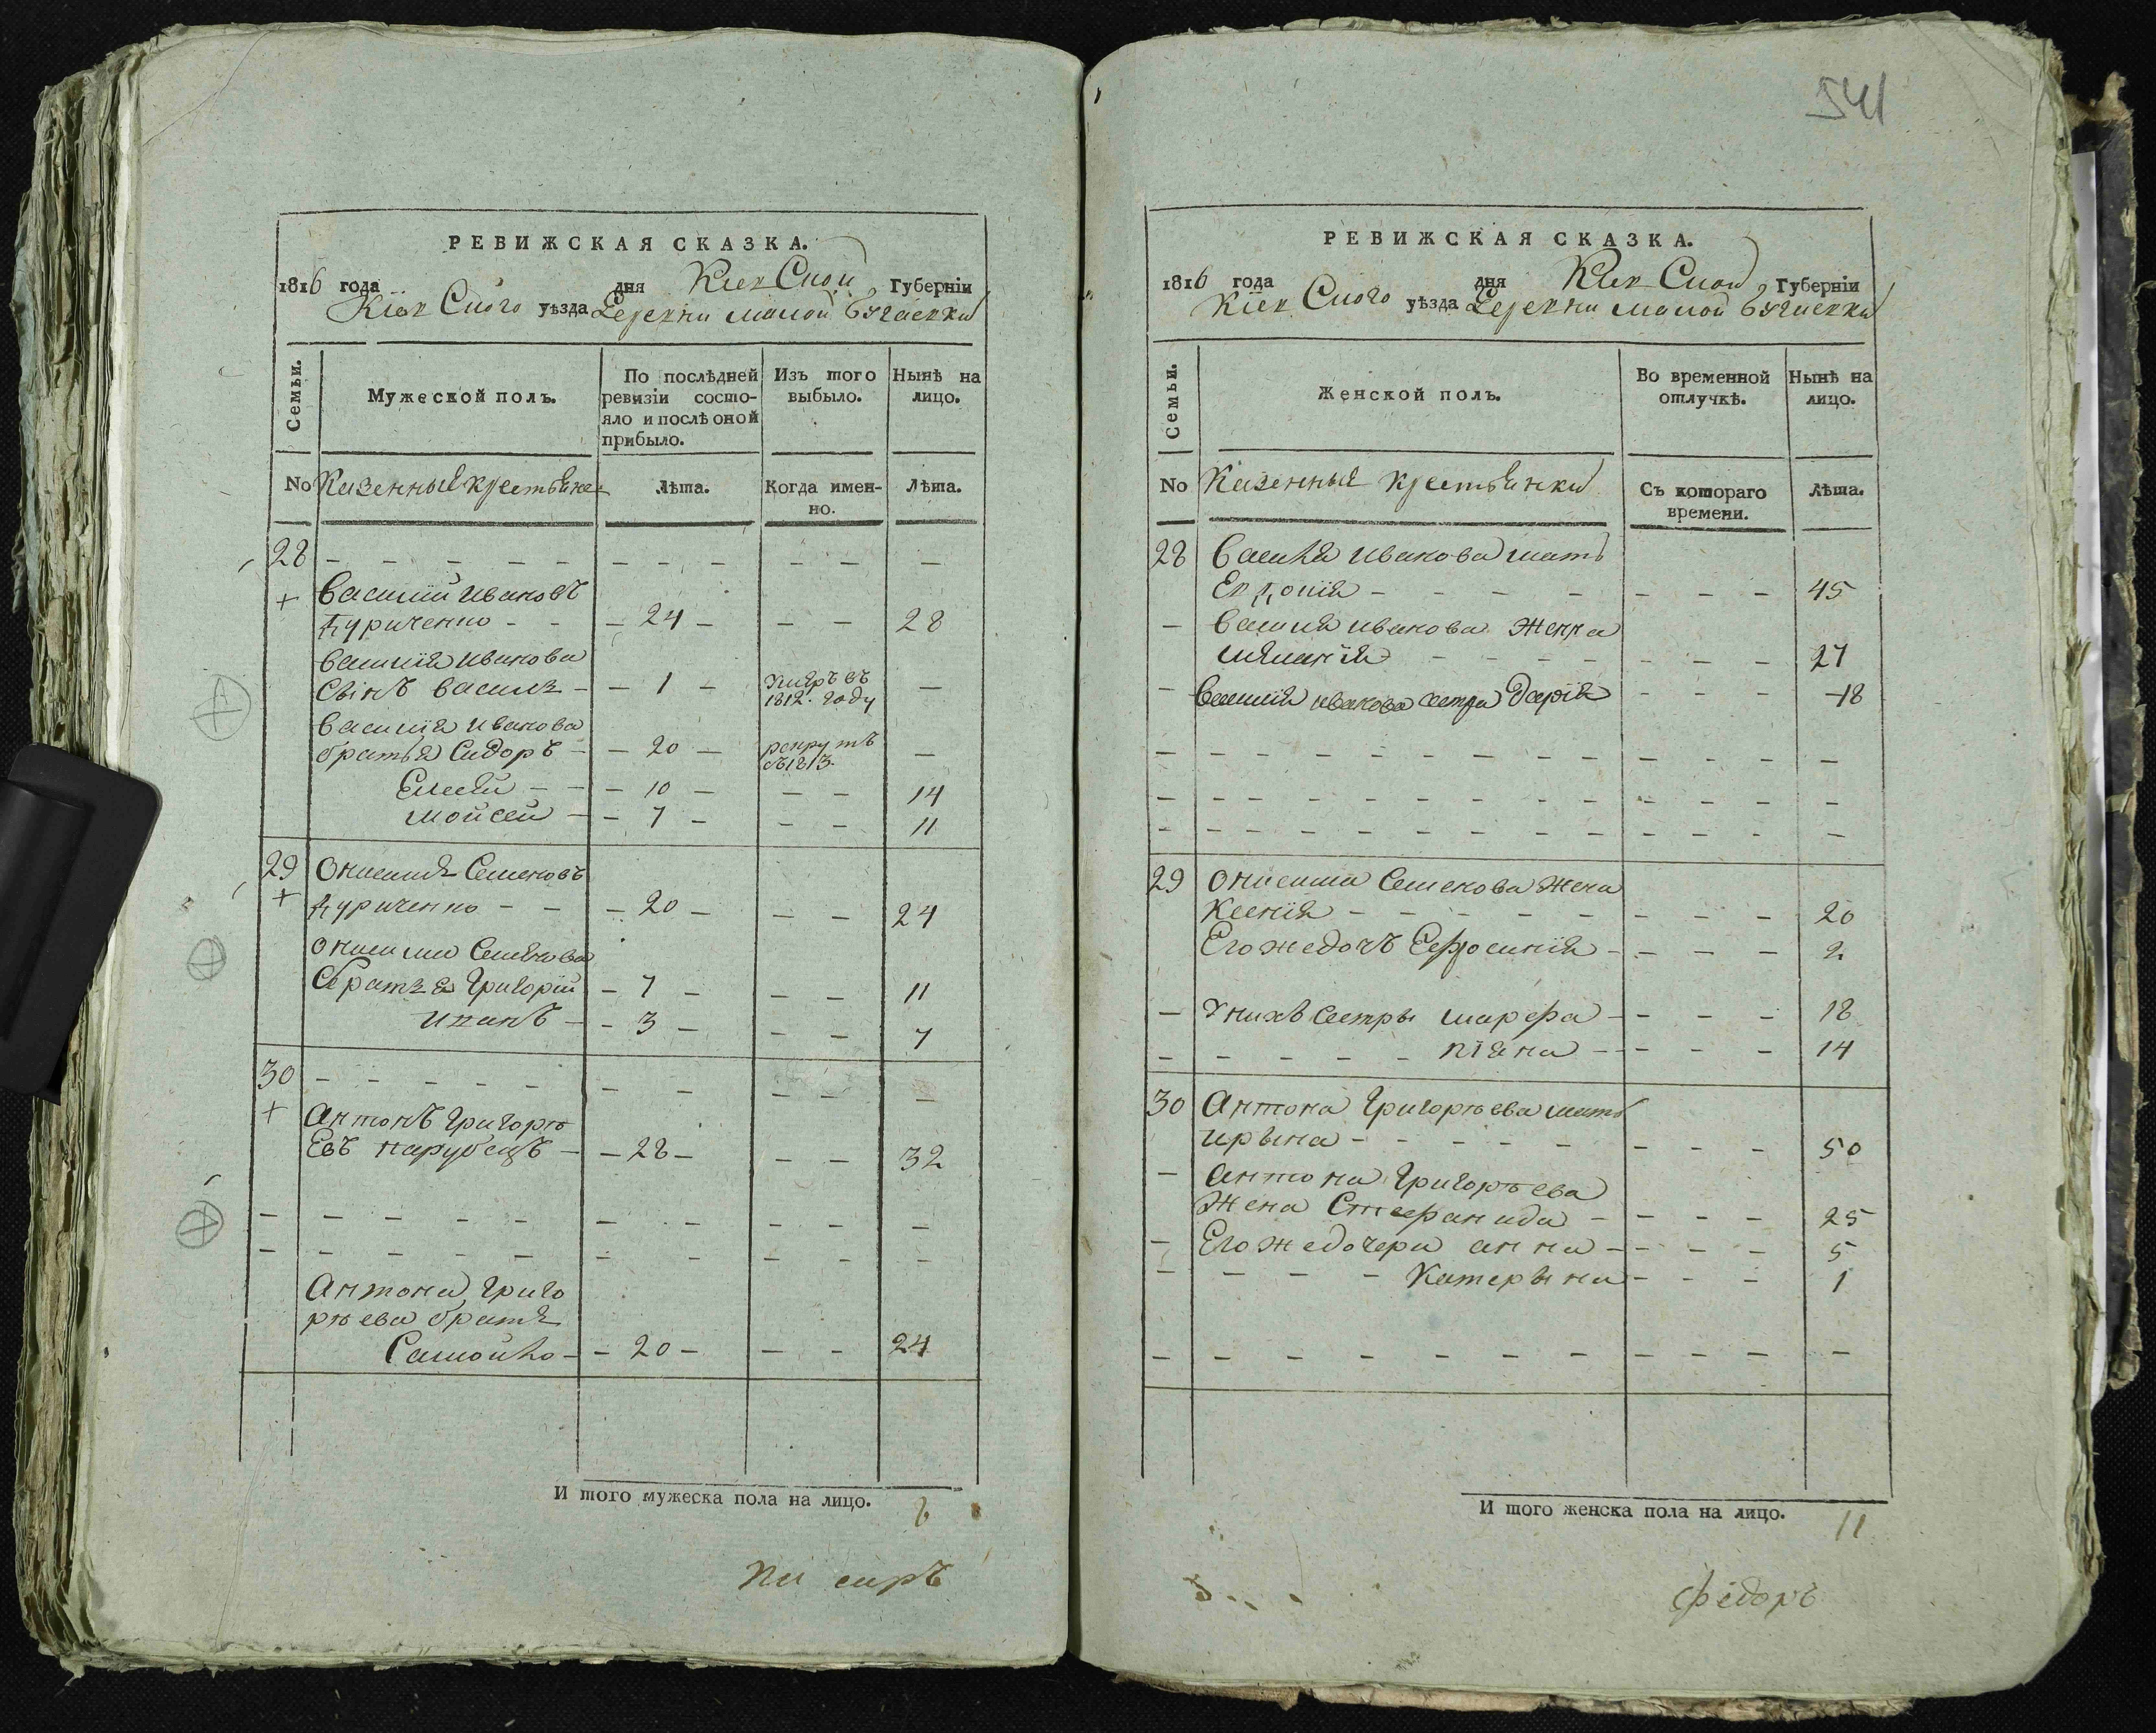 РЕВИЖСКАЯ СКАЗКА.
1816 года дня Кіевской Губерніи
Кіевского уѣзда Деревни малой Бугаевки
Семьи.
Мужеской полъ.
По послѣдней ревизіи состо-
яло и послѣ оной
прибыло.
Изъ того
выбыло.
Нынѣ на
лицо.
No Казенные крестьяне
Лѣта.
Когда имен-
но.
Лѣта.
28 - - - - - - - - - - - -
Василий Ивановъ
- - - 24 - - - 28
Василія Иванова
Сынъ Василь - - 1 - умръ въ
1812. году -
Василія Иванова
братья Сидоръ - - 20 - рекрутъ
въ 1813. -
Елесей - - - 10 - - - 14
Мойсей - - 7 - - - 11
29 Онисимъ Семеновъ
- - - 20 - - - 24
Онисима Семенова
братья Григорій - 7 - - - 11
Иванъ - - 3 - - - 7
30 - - - - - - - - - -
Антонъ Григорь
евъ парубецъ - - 28 - - - 32
- - - - - - - - - -
- - - - - - - - - -
Антона Григо
рьева братъ
Самойло - - 20 - - - 24
И того мужеска пола на лицо. 6
Писаръ
541
РЕВИЖСКАЯ СКАЗКА.
1816 года дня Кіевской Губерніи
Кіевского уѣзда Деревни малой Бугаевки
Семьи.
Женской полъ.
Во временной
отлучкѣ.
Нынѣ на
лицо.
No Казенные крестьянки
Съ котораго
времени.
Лѣта.
28 Василія Иванова мать
Евдокія - - - - - - - 45
- Василія Иванова женка
Меланія - - - - - - - 27
- Василія Иванова сестра Дарія - - - - 18
- - - - - - - - - - - - -
- - - - - - - - - - - - -
- - - - - - - - - - - - -
29 Онисима Семенова жена
Ксенія - - - - - - - - 20
Его же дочь Ефросинія - - - - 2
- У нихъ сестры Марфа - - - - 18
- - - - - - - - - 14
30 Антона Григорьева мать
Ирына - - - - - - - - 50
- Антона Григорьева
Жена Стефанида - - - - - 25
- Его же дочери Анна - - - - 5
- - - - Катерына - - - 1
- - - - - - - - - - -
И того женска пола на лицо. 11
Федоръ